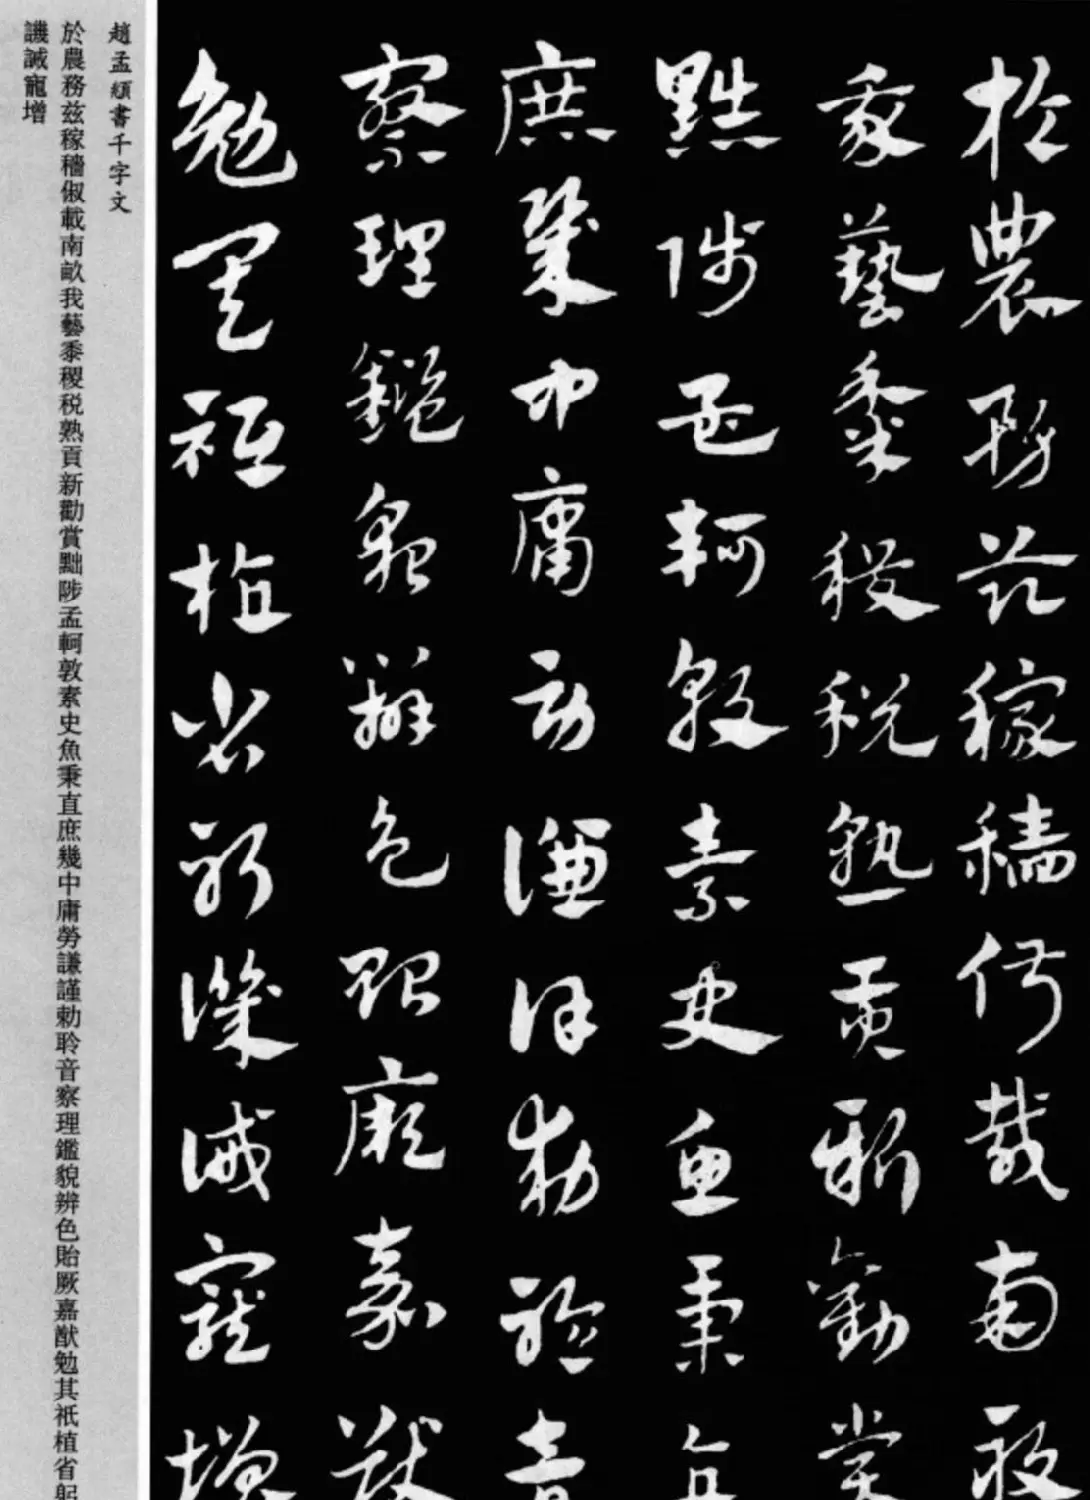 於農務茲稼穡俶載南畝
我藝黍稷稅熟貢新勸賞
黜陟孟軻敦素史魚秉直
庶幾中庸勞謙謹勅聆音
察理鑑貌辨色貽厥嘉猷
勉其祗植省躬譏誡寵增
趙孟頫書千字文
於農務兹稼穡俶載南畝我藝黍稷税熟頁新勸賞黜陟孟軻敦素史魚秉直庶幾中庸勞謙謹勅聆音察理鑑貌辨色貽厥嘉猷勉其祇植省躬
譏誡寵增